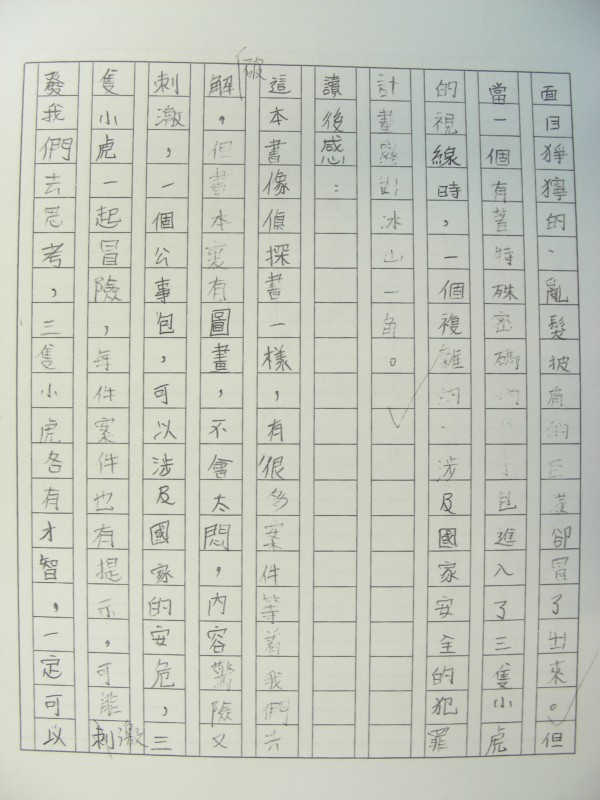 面目猙獰的、亂髮披肩的巨漢卻冒了出來。但
當一個有著特殊密碼的包進入了三隻小虎
的視線時，一個複雜的、涉及國家安全的犯罪
計畫露出冰山一角。
讀後感：
這本書像偵探書一樣，有很多案件等着我們去
破解，但書本裏有圖畫，不會太悶，內容驚險又
刺激，一個公事包，可以涉及國家的安危，三
隻小虎一起冒險，每件案件也有提示，可能刺激
發我們去思考，三隻小虎各有才智，一定可以